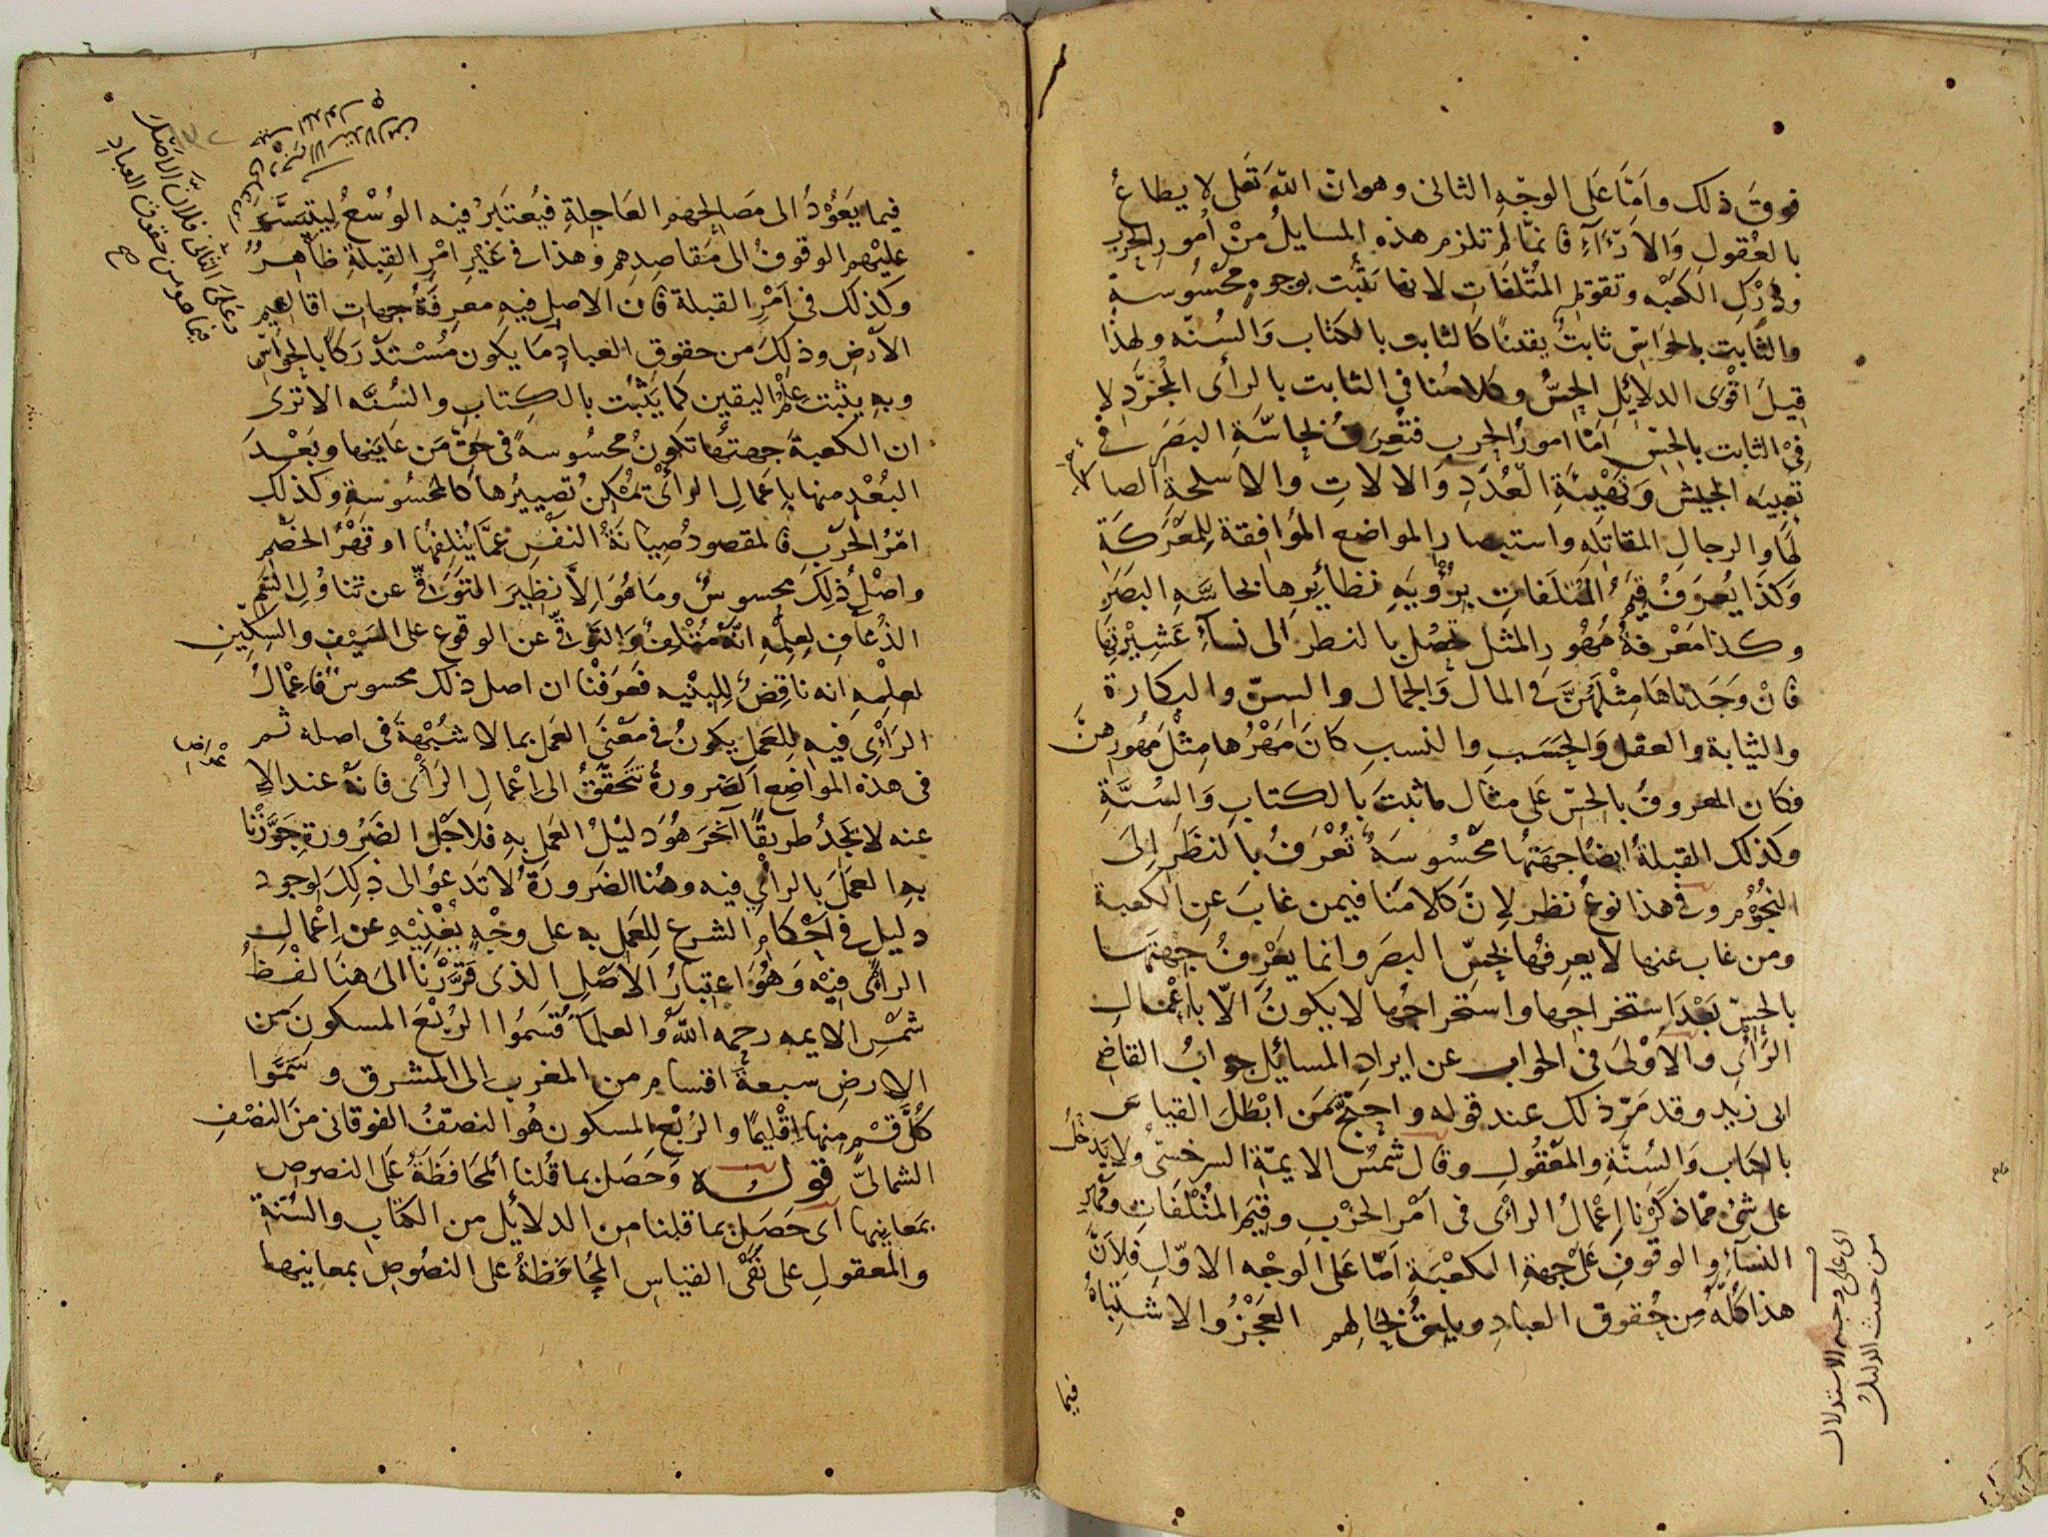 فوق ذلك واما على الوجه الثاني وهو ان الله تعلى لا يطاع
بالعقول والاراء فانما لم تلزم هذه المسايل من امور الحرب
ودرك الكعبه وتقويم المتلفات لانها تثبت بوجوه محسوسة
والثابت بالحواس ثابت يقينا كالثابت بالكتاب والسنه ولهذا
قيل اقوى الدلائل الحس وكلامنا في الثابت بالرأى المجرد لا
في الثابت بالحس اما امور الحرب فتعرف بحاسة البصر في
تعبيه الجيش وتهيئة العدد والالات والاسلحة الصالحة
لها والرجال المقاتله واستبصار المواضع الموافقة للمعركة
وكذا يعرف قيم المتلفات برؤيه نظائرها بحاسه البصر
وكذا معرفة مهور المثل تحصل بالنظر الى نساء عشيرتها
فان وجدناها مثلهن في المال والجمال والسن والبكارة
والثيابة والعقل والحسب والنسب كان مهرها مثل مهورهن
فكان المعروف بالحس على مثال ما ثبت بالكتاب والسنة
وكذلك القبلة ايضا جهتها محسوسة تعرف بالنظر الى
النجوم وفي هذا نوع نظر لان كلامنا فيمن غاب عن الكعبة
ومن غاب عنها لا يعرفها بحس البصر وانما يعرف جهتها
بالحس بعد استخراجها واستخراجها لا يكون الا باعمال
الرأى والاولى في الجواب عن ايراد المسائل جواب القاضي
ابى زيد وقد مر ذلك عند قوله واحتج من ابطل القياس
بالكتاب والسنة والمعقول وقال شمس الايمة السرخسى ولا يدخل
على شئ مما ذكرنا اعمال الرأى في امر الحرب وقيم المتلفات ومهر
النساء والوقوف على جهة الكعبة اما على الوجه الاول فلان
هذا كله من حقوق العباد ويليق بحالهم العجز والاشتباه
فيما
اى على وجه الاستدلال
من حيث الدليل
فيما يعود الى مصالحهم العاجلة فيعتبر فيه الوسع ليتيسر
عليهم الوقوف الى مقاصدهم وهذا في غير امر القبلة ظاهر
وكذلك في امر القبلة فان الاصل فيه معرفة جهات اقاليم
الارض وذلك من حقوق العباد ما يكون مستدركا بالحواس
وبه يثبت علم اليقين كما يثبت بالكتاب والسنه الا ترى
ان الكعبة جهتها تكون محسوسة في حق من عاينها وبعد
البعد منها باعمال الرأى تمكن تصييرها كالمحسوسة وكذلك
امر الحرب فالمقصود صيانة النفس عما يتلفها او قهر الخصم
واصل ذلك محسوس وما هو الا نظير التوقى عن تناول السم
الذعاف لعلمه انه متلف والتوقى عن الوقوع على السيف والسكين
لعلمه انه ناقض للبنيه فعرفنا ان اصل ذلك محسوس فاعمال
الرأى فيه للعمل يكون في معنى العمل بما لا شبهة في اصله ثم
في هذه المواضع الضرورة تتحقق الى اعمال الرأى فانه عند الاعراض
عنه لا يجد طريقا اخر هو دليل العمل به فلاجل الضرورة جوزنا
به العمل بالرأى فيه وهنا الضرورة لا تدعو الى ذلك لوجود
دليل في احكام الشرع للعمل به على وجه يغنيه عن اعمال
الرأى فيه وهو اعتبار الاصل الذى قررنا الى هنا لفظ
شمس الايمه رحمه الله والعلما قسموا الربع المسكون من
الارض سبعة اقسام من المغرب الى المشرق وسموا
كل قسم منها اقليما والربع المسكون هو النصف الفوقانى من النصف
الشمالى قوله وحصل بما قلنا المحافظة على النصوص
بمعانيها اى حصل بما قلنا من الدلائل من الكتاب والسنة
والمعقول على نفى القياس المحافظة على النصوص بمعانيها
وعلى الثانى فلان الاصل
فيما هو من حقوق العباد